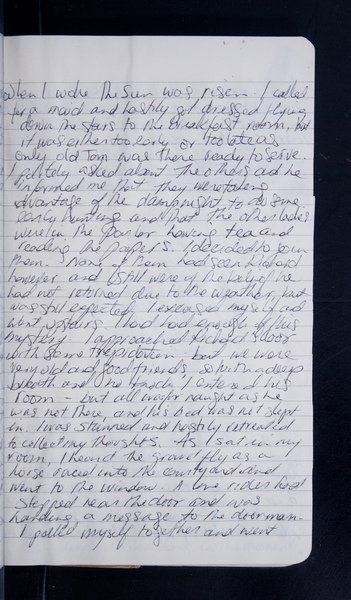 When I woke the sun was risen. I called
for a maid and hastily got dressed flying
down the stairs to the breakfast room, but
it was either too early or too late as
only old Tom was there ready to serve.
I politely asked about the others and he
informed me that they were taking
advantage of the damp night to do some
early hunting and that the other ladies
were in the parlor having tea and
reading the papers. I decided to join
them. None of them had seen Richard
however and still were of the belief he
had not returned due to the weather, but
was still expected. I excused myself and
went upstairs. I had had enough of this
mystery. I approached Richard's door
with some trepidation - but we were
very old and good friends, so with a deep
breath and one knock I entered his
room - but all was for naught as he
was not there, and his bed was not slept
in. I was stunned and hastily retreated
to collect my thoughts. As I sat in my
room, I heard the gravel fly as a
horse raced into the courtyard and
went to the window. A lone rider had
stopped near the door and was
handing a message to the doorman.
I pulled myself together and went